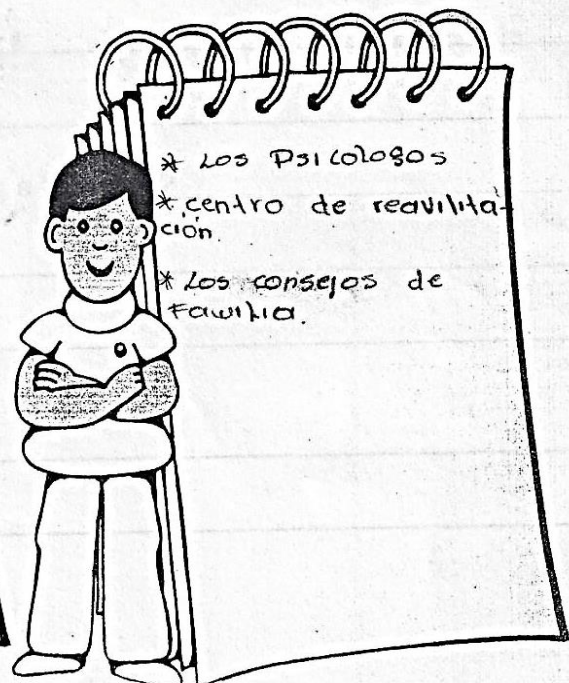 * Los Psicologos
* centro de reavilita-
ción.
* Los consejos de
Familia.